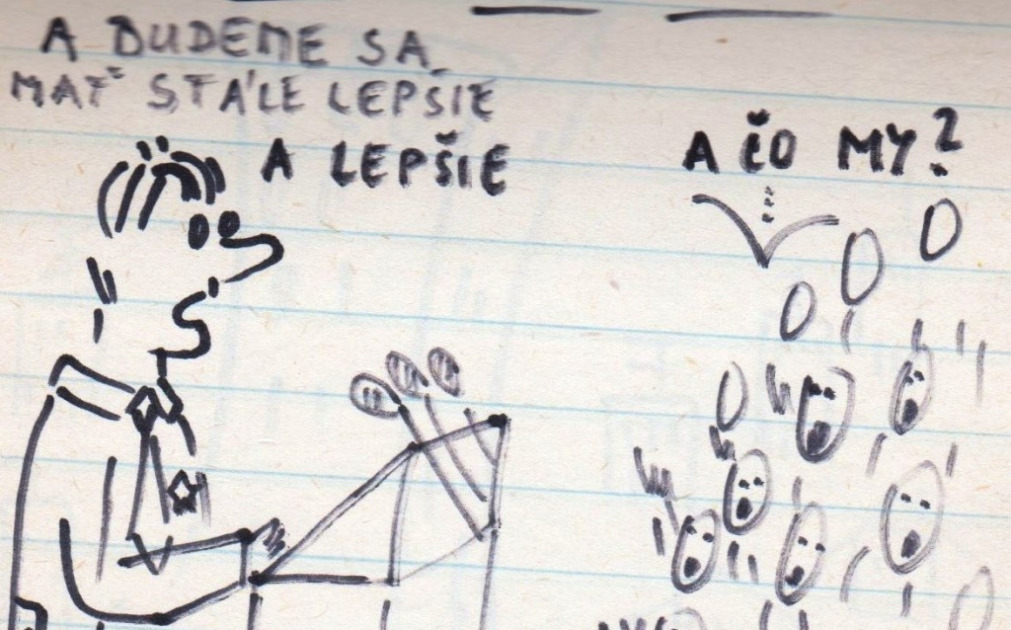 A BUDEME SA
MAŤ STÁLE LEPŠIE
A LEPŠIE
A ČO MY?